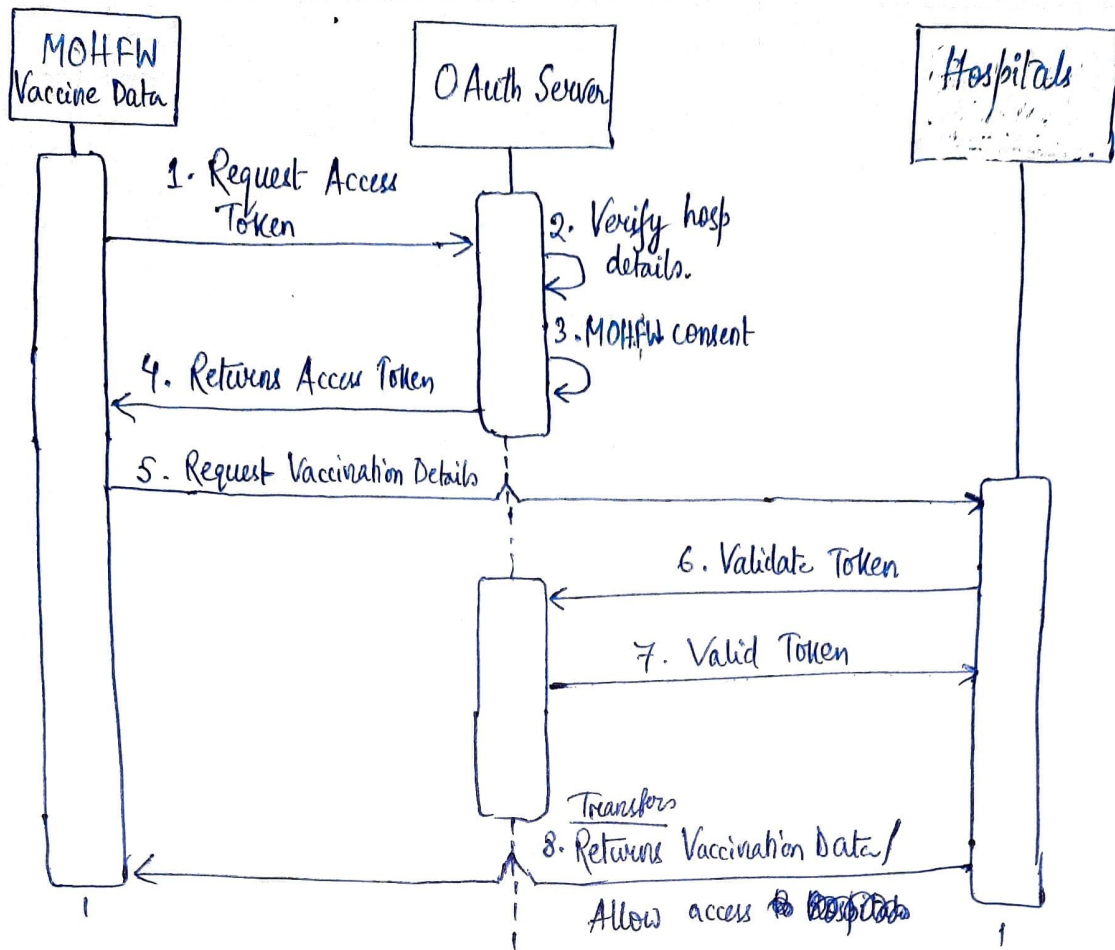 MOHFW
Vaccine Data
OAuth Server
Hospitals
1. Request Access
Token
2. Verify hosp
details.
3. MOHFW consent
4. Returns Access Token
5. Request Vaccination Details
6. Validate Token
7. Valid Token
Transfers
8. Returns Vaccination Data/
Allow access